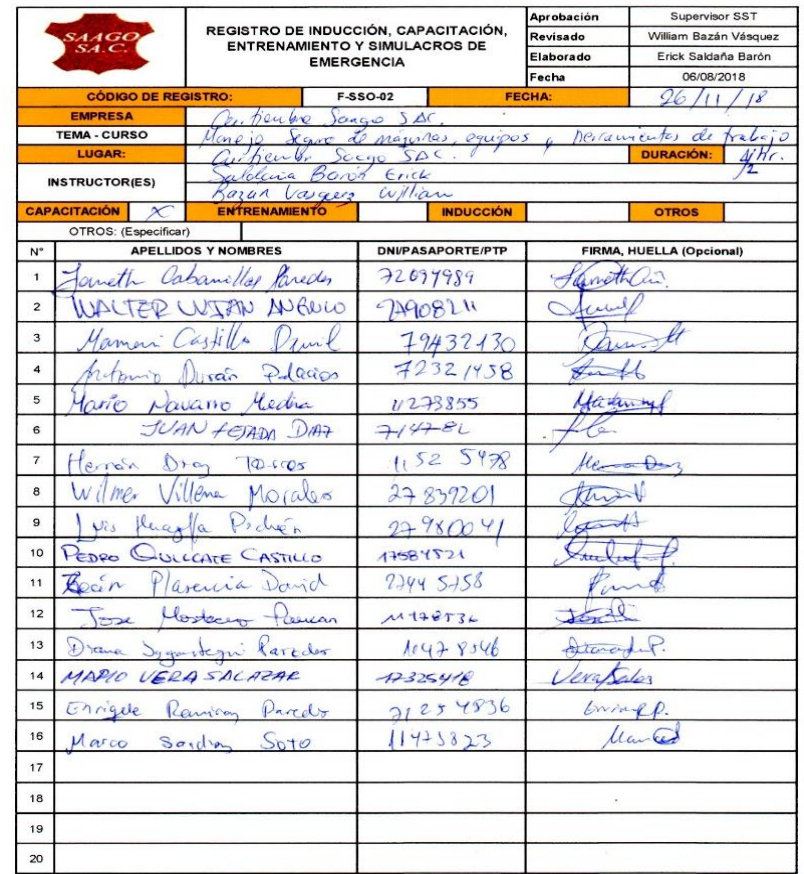 SAAGO S.A.C.
REGISTRO DE INDUCCIÓN, CAPACITACIÓN, ENTRENAMIENTO Y SIMULACROS DE EMERGENCIA
Aprobación Supervisor SST
Revisado William Bazán Vásquez
Elaborado Erick Saldaña Barón
Fecha 06/08/2018
CÓDIGO DE REGISTRO: F-SSO-02 FECHA: 26/11/18
EMPRESA Curtiembre Saago SAC.
TEMA - CURSO Manejo Seguro de máquinas, equipos y herramientas de trabajo
LUGAR: Curtiembre Saago SAC. DURACIÓN: 1/2 Hr.
INSTRUCTOR(ES) Saldaña Barón Erick
Bazán Vasquez William
CAPACITACIÓN X ENTRENAMIENTO INDUCCIÓN OTROS
OTROS: (Especificar)
N° APELLIDOS Y NOMBRES DNI/PASAPORTE/PTP FIRMA, HUELLA (Opcional)
1 Janeth Cabanillas Paredes 72097989
2 WALTER LUJAN
3 Mamani Castillo 79432130
4 Antonio Durán Palacios 72321458
5 Mario Navarro Medina 11273855
6 JUAN TEJADA DIAZ
7 Hernán Díaz Torres 1152 5478
8 Wilmer Villena Morales 27839201
9 Luis 27980041
10 PEDRO QUILCATE CASTILLO 17584521
11 Plasencia David 2744 5758
12 Jose
13 Diana Paredes 1047 8546
14 MARIO VERA SALAZAR 17325418 Vera Salas
15 Enrique Ramirez Paredes 7125 4836
16 Marco Soto 11475823
17
18
19
20